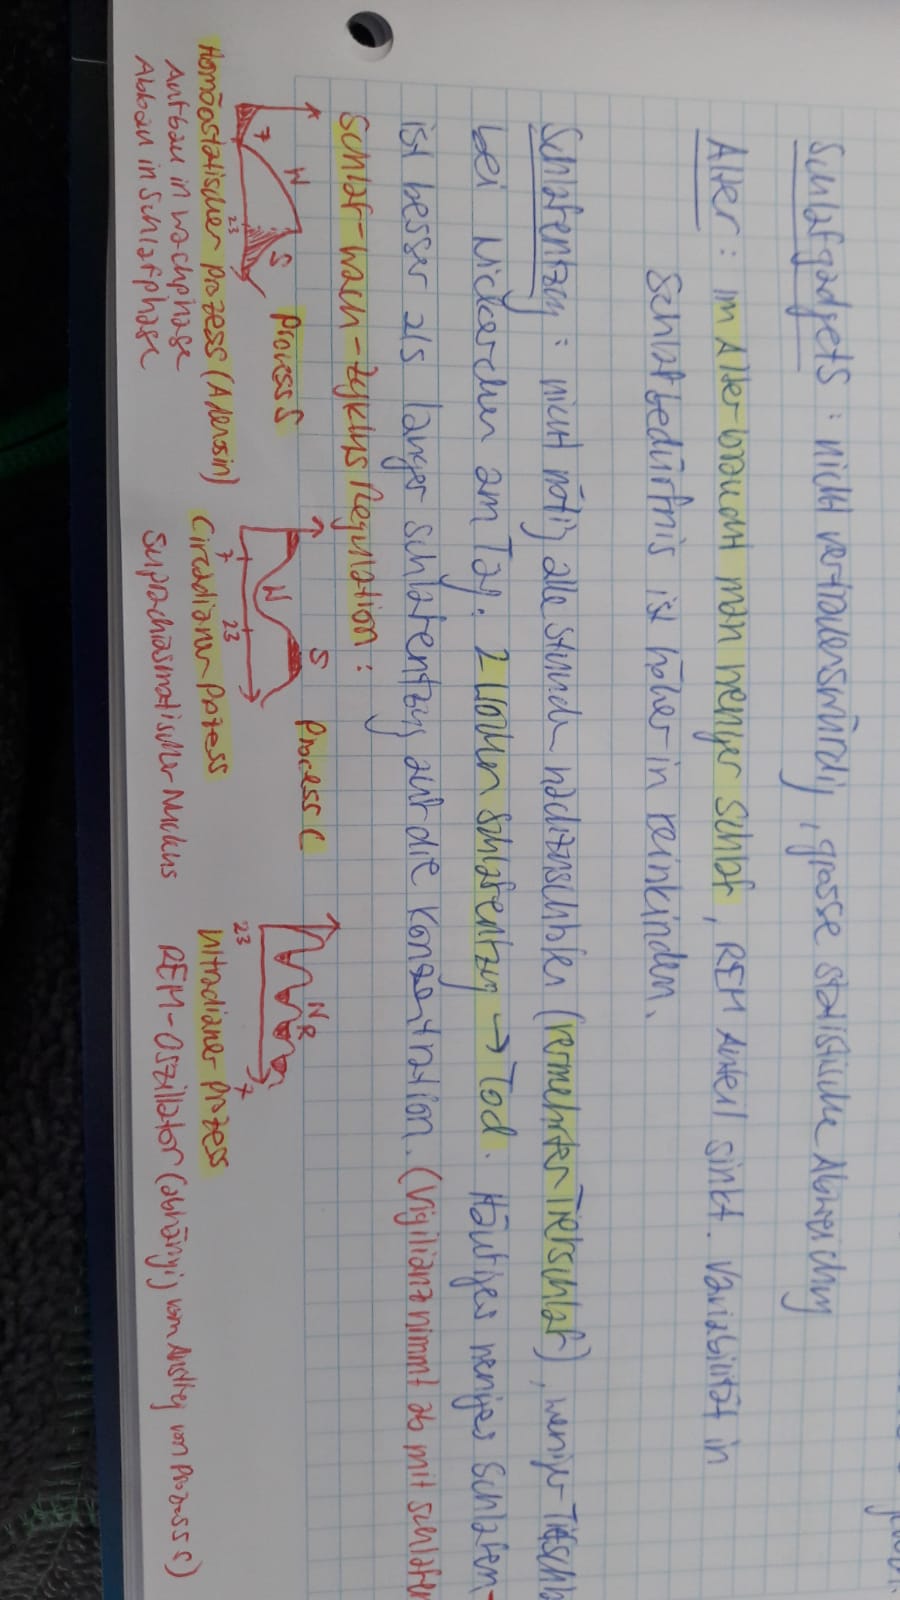 Schlafgadgets : nicht vertrauenswürdig, grosse statistische Abweichung
Alter : im Alter braucht man weniger Schlaf, REM Anteil sinkt. Variabilität in
Schlafbedürfnis ist höher in Kleinkindern.
Schlafentzug : nicht nötig alle Stunden nachzuschlafen (vermehrter Tiefschlaf), weniger Tiefschla
bei Nickerchen am Tag. 2 Wochen Schlafentzug → Tod. Häufiges weniges Schlafen-
ist besser als langer Schlafentzug auf die Konzentration. (Vigilianz nimmt ab mit schlafen
Schlaf-Wach-Zyklus Regulation :
W S Process S
7 23
Homöostatischer Prozess (Adenosin)
Aufbau in Wachphase
Abbau in Schlafphase
W S Process C
7 23
Circadianer Prozess
Suprachiasmatischer Nucleus
N R
23 7
Ultradianer Prozess
REM-Oszillator (abhängig vom Anstieg von Prozess S)